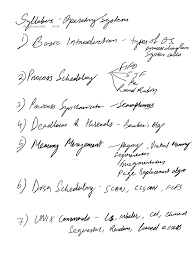 Syllabus - Operating System
1) Basic Introduction - types of OS
process diagram
System calls
2) Process Scheduling
FIFO
SJF
RR
Round Robin
3) Process Synchronization - Semaphores
4) Deadlocks & Threads - Banker's Algo
5) Memory Management - Paging, Virtual Memory
Segmentation
Fragmentation
Page replacement algo
6) Disk Scheduling - SCAN, CSCAN, FCFS
7) UNIX Commands - ls, mkdir, cd, chmod
Sequential, Random, Linked access